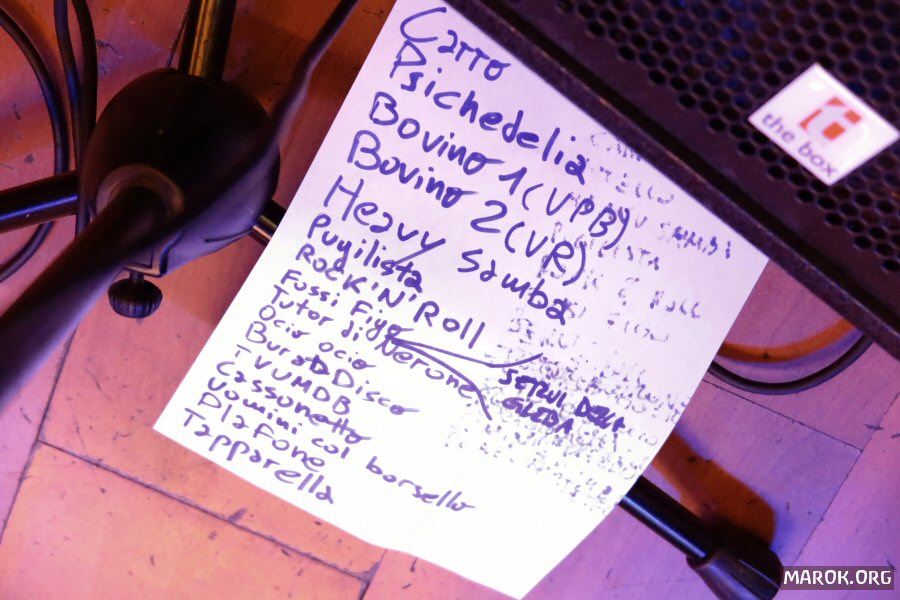 Carro
Psichedelia
Bovino 1 (VPB)
Bovino 2 (VR)
Heavy Samba
Pugilista
ROCK'N'Roll
Fossi Figo
SERVI DELLA
GLEBA
Tutor di Nerone
Ocio ocio
BuraDDisco
TVUMDB
Cassonetto
Uomini col borsello
Plafone
Tapparella
the box
MAROK.ORG